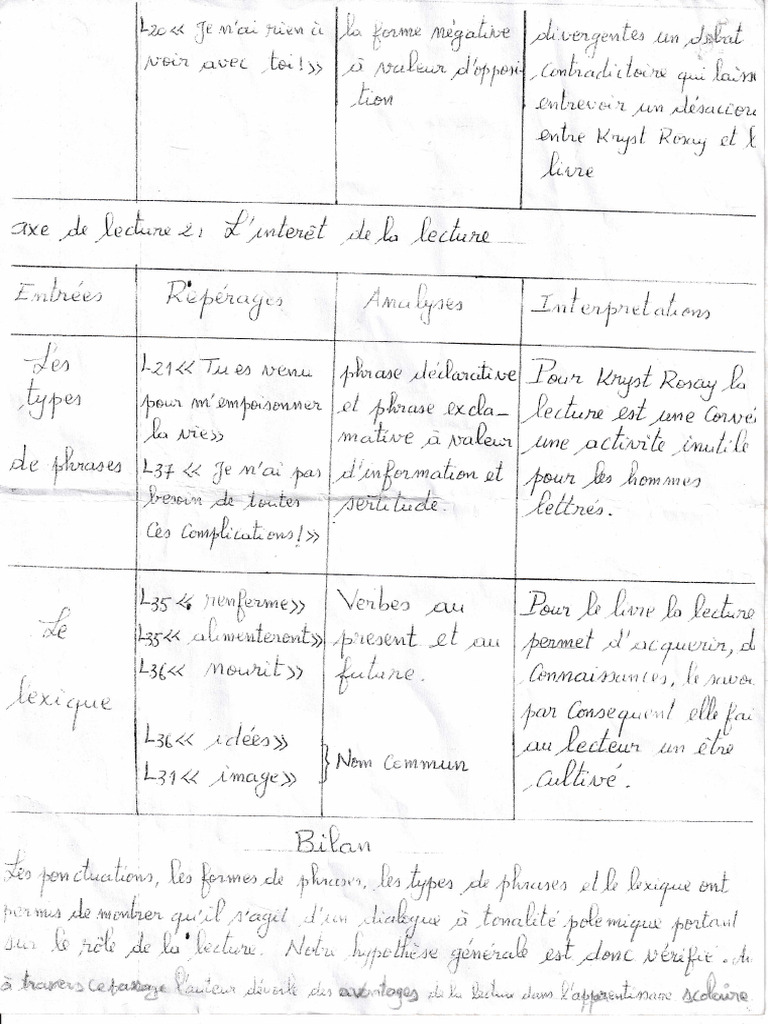 L20 « Je n'ai rien à
voir avec toi ! »
la forme négative
à valeur d'opposi
tion
divergentes un débat
contradictoire qui laiss
entrevoir un désaccor
entre Kryst Rosay et l
livre
axe de lecture 2 : L'interêt de la lecture
Entrées
Répérages
Analyses
Interpretations
Les
types
de phrases
L21 « Tu es venu
pour m'empoisonner
la vie »
L37 « Je n'ai pas
besoin de toutes
ces complications ! »
phrase déclarative
et phrase excla-
mative à valeur
d'information et
sertitude.
Pour Kryst Rosay la
lecture est une corvé
une activite inutile
pour les hommes
lettrés.
Le
lexique
L35 « renferme »
L35 « alimenteront »
L36 « nourit »
L36 « idées »
L31 « image »
Verbes au
present et au
future.
Nom Commun
Pour le livre la lecture
permet d'acquerir, d
connaissances, le savoi
par consequent elle fai
au lecteur un être
cultivé.
Bilan
Les ponctuations, les formes de phrases, les types de phrases et le lexique ont
permis de montrer qu'il s'agit d'un dialogue à tonalité polemique portant
sur le rôle de la lecture. Notre hypothèse générale est donc vérifié.
à travers ce passage l'auteur dévoile des avantages de la lecture dans l'apprentissage scolaire